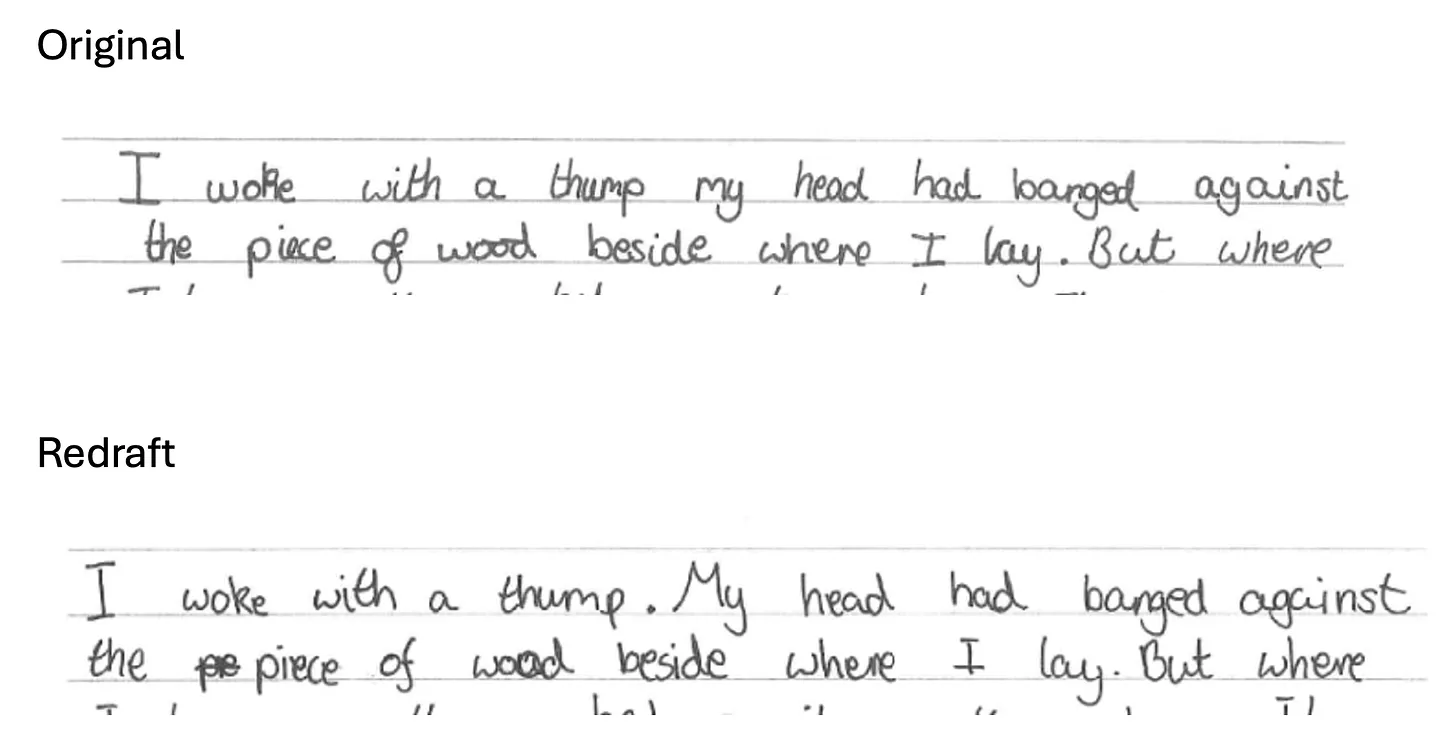 Original
I woke with a thump my head had banged against
the piece of wood beside where I lay. But where
Redraft
I woke with a thump. My head had banged against
the piece of wood beside where I lay. But where